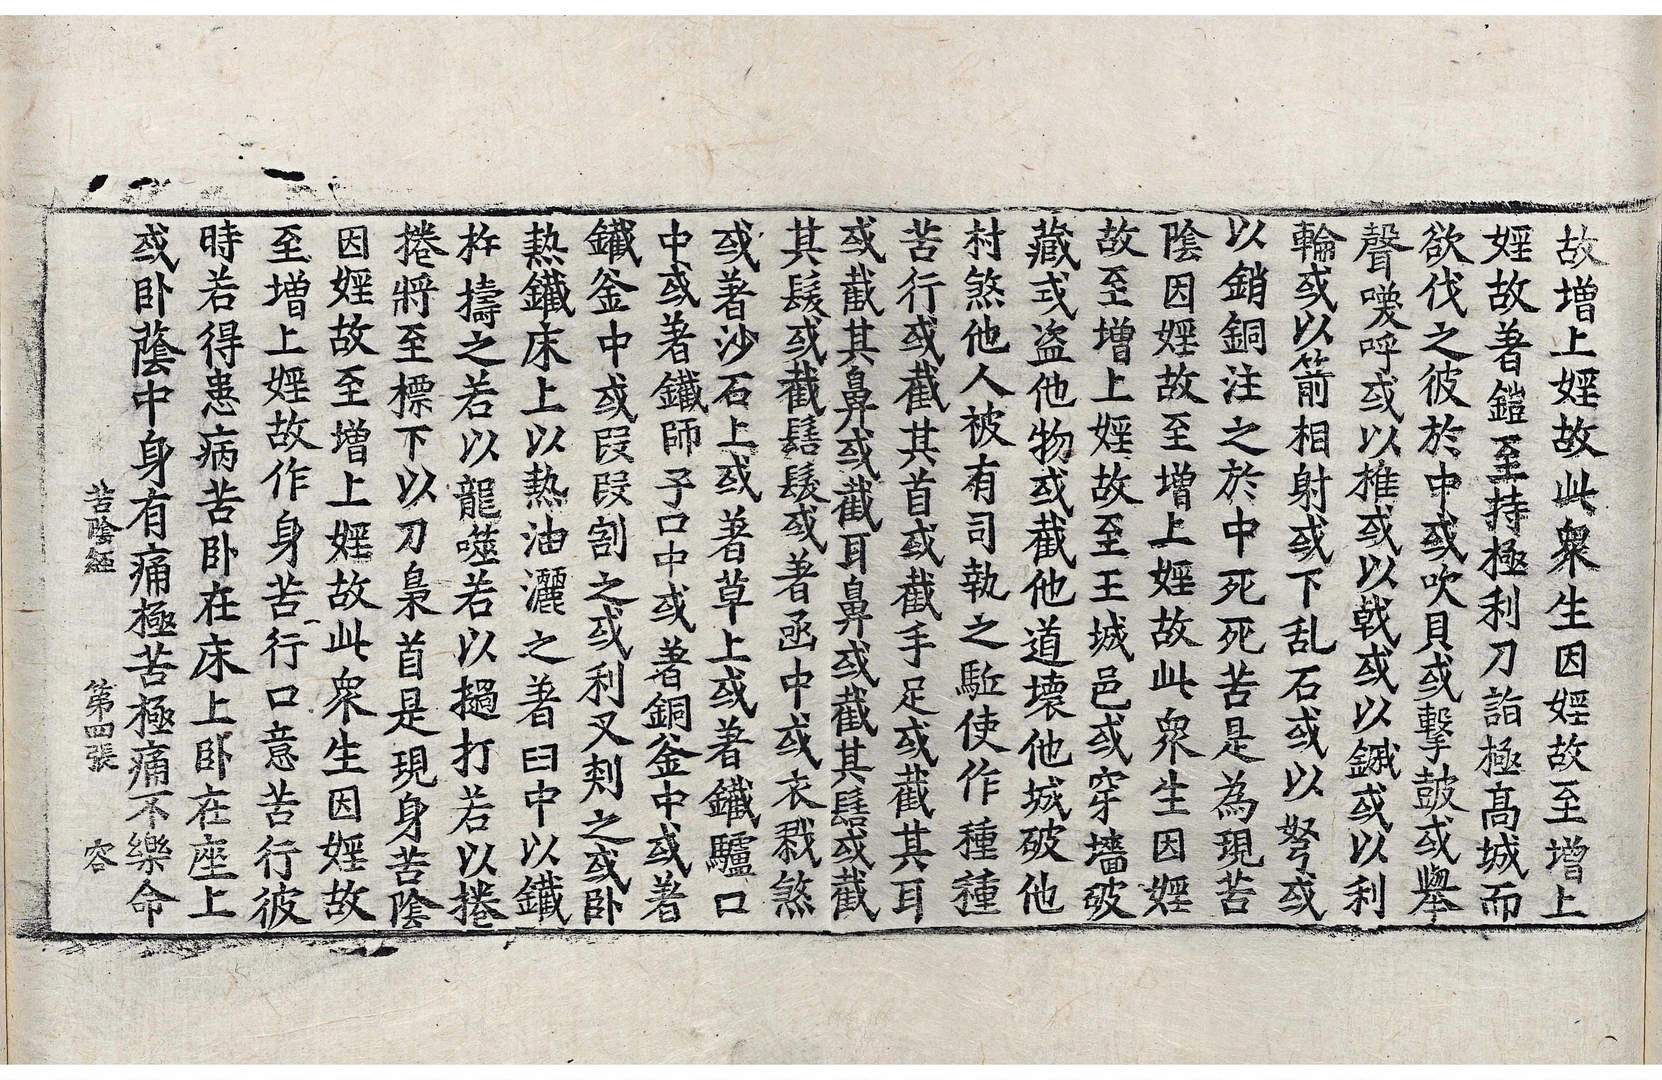 故增上婬故此衆生因婬故至增上
婬故著鎧至持極利刀詣極高城而
欲伐之彼於中或吹貝或擊鼓或舉
聲喚呼或以椎或以戟或以鉞或以利
輪或以箭相射或下乱石或以弩或
以銷銅注之於中死死苦是為現苦
陰因婬故至增上婬故此衆生因婬
故至增上婬故至王城邑或穿墻破
藏或盗他物或截他道壞他城破他
村煞他人被有司執之駈使作種種
苦行或截其首或截手足或截其耳
或截其鼻或截耳鼻或截其髻或截
其髮或截髻髮或著函中或衣戮煞
或著沙石上或著草上或著鐵驢口
中或著鐵師子口中或著銅釜中或著
鐵釜中或段段割之或利叉刾之或卧
熱鐵床上以熱油灑之著臼中以鐵
杵擣之若以龍噬若以撾打若以捲
捲將至標下以刀梟首是現身苦陰
因婬故至增上婬故此衆生因婬故
至增上婬故作身苦行口意苦行彼
時若得患病苦卧在床上卧在座上
或卧蔭中身有痛極苦極痛不樂命
苦陰經 第四張 容